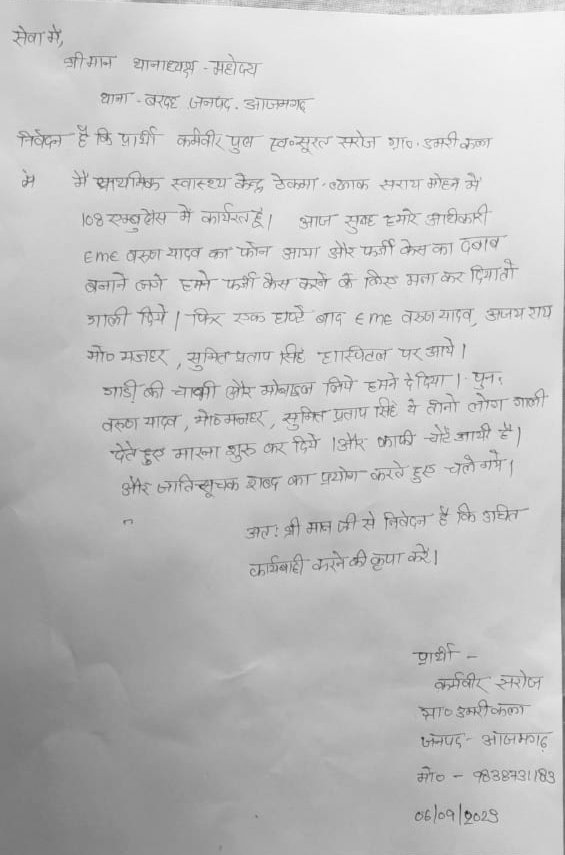 सेवा में,
श्रीमान थानाध्यक्ष - महोदय
थाना - बरदह जनपद. आजमगढ़
निवेदन है कि प्रार्थी कर्मवीर पुत्र स्व० सूरत सरोज ग्रा०. डमरी कला
मे मैं प्राथमिक स्वास्थ्य केन्द्र ठेकमा. ब्लाक सराय मोहन में
108 एम्बुलेंस में कार्यरत हूँ। आज सुबह हमारे अधिकारी
EME वरुण यादव का फोन आया और फर्जी केस का दबाव
बनाने लगे हमने फर्जी केस करने के लिए मना कर दिया तो
गाली दिये। फिर एक हप्ते बाद EME वरुण यादव, अजय राय
मो० मजहर, सुमित प्रताप सिंह हास्पिटल पर आये।
गाडी की चाभी और मोबाइल लिये हमने दे दिया। पुनः
वरुण यादव, मो० मजहर, सुमित प्रताप सिंह ये तीनो लोग गाली
देते हुए मारना शुरू कर दिये। और काफी चोटें आयी है।
और जातिसूचक शब्द का प्रयोग करते हुए चले गये।
अतः श्री मान जी से निवेदन है कि उचित
कार्यवाही करने की कृपा करें।
प्रार्थी -
कर्मवीर सरोज
ग्रा० डमरी कला
जनपद - आजमगढ़
मो० - 9838731183
06/09/2023